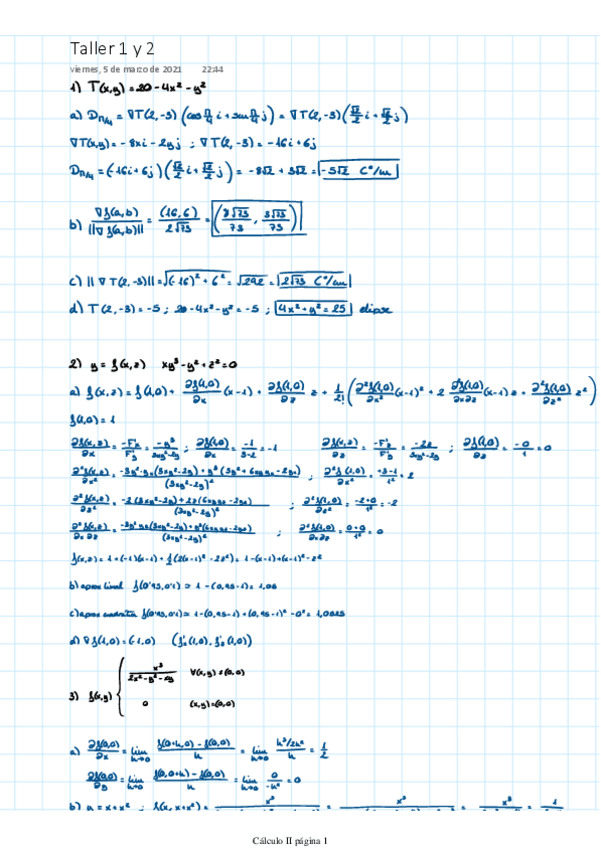 Taller 1 y 2
viernes, 5 de marzo de 2021 22:44
1) T(x,y) = 20 - 4x² - y²
a) D_π/4 = ∇T(2,-3) (cos π/4 i + sen π/4 j) = ∇T(2,-3) (√2/2 i + √2/2 j)
∇T(x,y) = -8xi - 2yj ; ∇T(2,-3) = -16i + 6j
D_π/4 = (-16i + 6j) (√2/2 i + √2/2 j) = -8√2 + 3√2 = -5√2 Cº/m
b) ∇f(a,b) / ||∇f(a,b)|| = (16,6) / 2√73 = (8√73/73 , 3√73/73)
c) ||∇T(2,-3)|| = √(-16)² + 6² = √292 = 2√73 Cº/m
d) T(2,-3) = -5 ; 20 - 4x² - y² = -5 ; 4x² + y² = 25 elipse
2) y = f(x,z) xy³ - y² + z² = 0
a) f(x,z) = f(1,0) + ∂f(1,0)/∂x (x-1) + ∂f(1,0)/∂z z + 1/2! (∂²f(1,0)/∂x² (x-1)² + 2 ∂²f(1,0)/∂x∂z (x-1) z + ∂²f(1,0)/∂z² z²)
f(1,0) = 1
∂f(x,z)/∂x = -F'x/F'y = -y³/3xy²-2y ; ∂f(1,0)/∂x = -1/3-2 = -1 ∂f(x,z)/∂z = -F'z/F'y = -2z/3xy²-2y ; ∂f(1,0)/∂z = -0/1 = 0
∂²f(x,z)/∂x² = /(3xy²-2y)² ; ∂²f(1,0)/∂x² = = 2
∂²f(x,z)/∂z² = /(3xy²-2y)² ; ∂²f(1,0)/∂z² = -2+0/1² = -2
∂²f(x,z)/∂x∂z = /(3xy²-2y)² ; ∂²f(1,0)/∂x∂z = 0+0/1² = 0
f(x,z) = 1 + (-1)(x-1) + ½ (2(x-1)² - 2z²) = 1 - (x-1) + (x-1)² - z²
b) aprox lineal f(0'95,0'1) ≃ 1 - (0,95-1) = 1,05
c) aprox cuadrática f(0'95,0'1) ≃ 1 - (0,95-1) + (0,95-1)² - 0² = 1,0525
d) ∇f(1,0) = (-1,0) (f'x(1,0), f'z(1,0))
3) f(x,y) { x³/2x²-y²-xy ∀(x,y) ≠ (0,0)
0 (x,y) = (0,0)
a) ∂f(0,0)/∂x = lim h→0 f(0+h,0) - f(0,0)/h = lim h→0 h³/2h²/h = 1/2
∂f(0,0)/∂y = lim h→0 f(0,0+h) - f(0,0)/h = lim h→0 0/-h² = 0
Cálculo II página 1